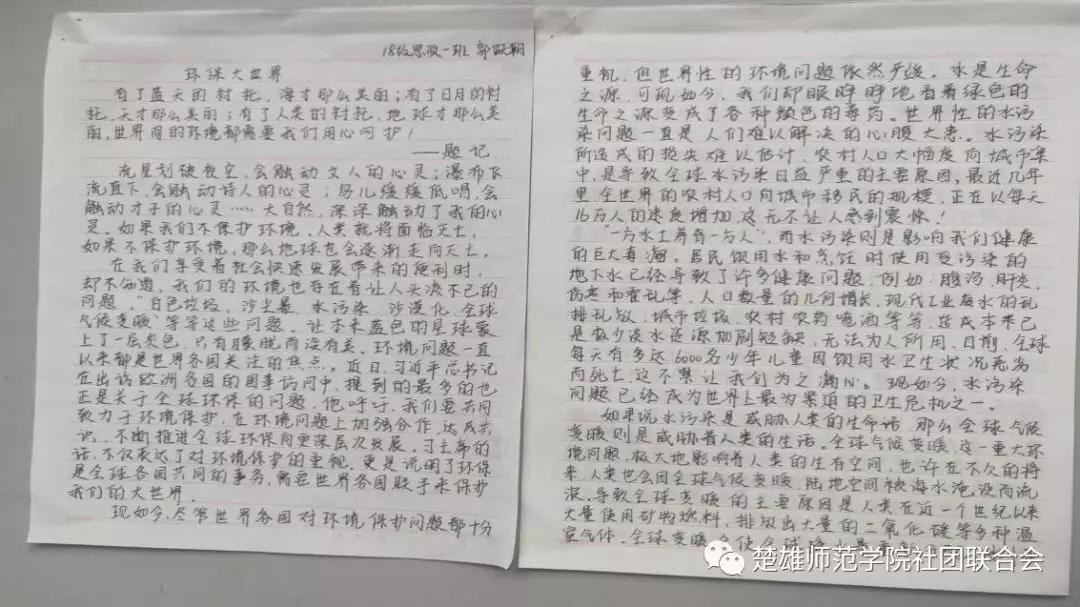 18级思政一班 郭跃朝
环保大世界
有了蓝天的衬托，海才那么美丽；有了日月的衬
托，天才那么美丽；有了人类的衬托，地球才那么美
丽，世界間的环境都需要我们用心呵护！
——题记
流星划破夜空，会触动文人的心灵；瀑布飞
流直下，会触动诗人的心灵；马儿缓缓低鸣，会
触动才子的心灵……大自然，深深触动了我的心
灵。如果我们不保护环境，人类就将面临灭亡，
如果不保护环境，那么地球也会逐渐走向灭亡。
在我们享受着社会快速发展带来的便利时，
却不知道，我们的环境也存在着让人头疼不已的
问题。"白色垃圾，沙尘暴，水污染，沙漠化，全球
气候变暖"等等这些问题。让本来蓝色的星球蒙
上了一层灰色，只有朦胧而没有美。环境问题一直
以来都是世界各国关注的焦点。近日，习近平总书记
在出访欧洲各国的国事访问中，提到的最多的也
正是关于全球环保的问题，他呼吁，我们要共同
致力于环境保护，在环境问题上加强合作，达成共
识，不断推进全球环保向更深层次发展。习主席的
话，不仅表达了对环境保护的重视，更是说明了环保
是全球各国共同的事务，需要世界各国联手来保护
我们的大世界。
现如今，尽管世界各国对环境保护问题都十分
重视，但世界性的环境问题依然严峻。水是生命
之源，可现如今，我们却眼睁睁地看着绿色的
生命之源变成了各种颜色的毒药。世界性的水污
染问题一直是人们难以解决的心腹大患。水污染
所造成的损失难以估计，农村人口大幅度向城市集
中，是导致全球水污染日益严重的主要原因，最近几年
里，全世界的农村人口向城市移民的规模，正在以每天
16万人的速度增加，这无不让人感到震惊！
"一方水土养育一方人"，而水污染则是影响我们健康
的巨大毒瘤。居民饮用水和烹饪时使用受污染的
地下水已经导致了许多健康问题，例如：腹泻，肝炎，
伤寒和霍乱等，人口数量的几何增长，现代工业废水的乱
排乱放，城市垃圾，农村农药喷洒等等，造成本来已
是极少淡水资源加剧短缺，无法为人所用，目前，全球
每天有多达6000名少年儿童因饮用水卫生状况恶劣
而死亡，这不禁让我们为之痛心。现如今，水污染
问题已经成为世界上最为紧迫的卫生危机之一。
如果说水污染是威胁人类的生命话，那么全球气候
变暖则是威胁着人类的生活。全球气候变暖，这一重大环
境问题，极大地影响着人类的生存空间，也许在不久的将
来，人类也会因全球气候变暖，陆地空间被海水淹没而流
泪，导致全球变暖的主要原因是人类在近一个世纪以来
大量使用矿物燃料，排放出大量的二氧化碳等多种温
室气体，全球变暖会使全球降水量
楚雄师范学院社团联合会